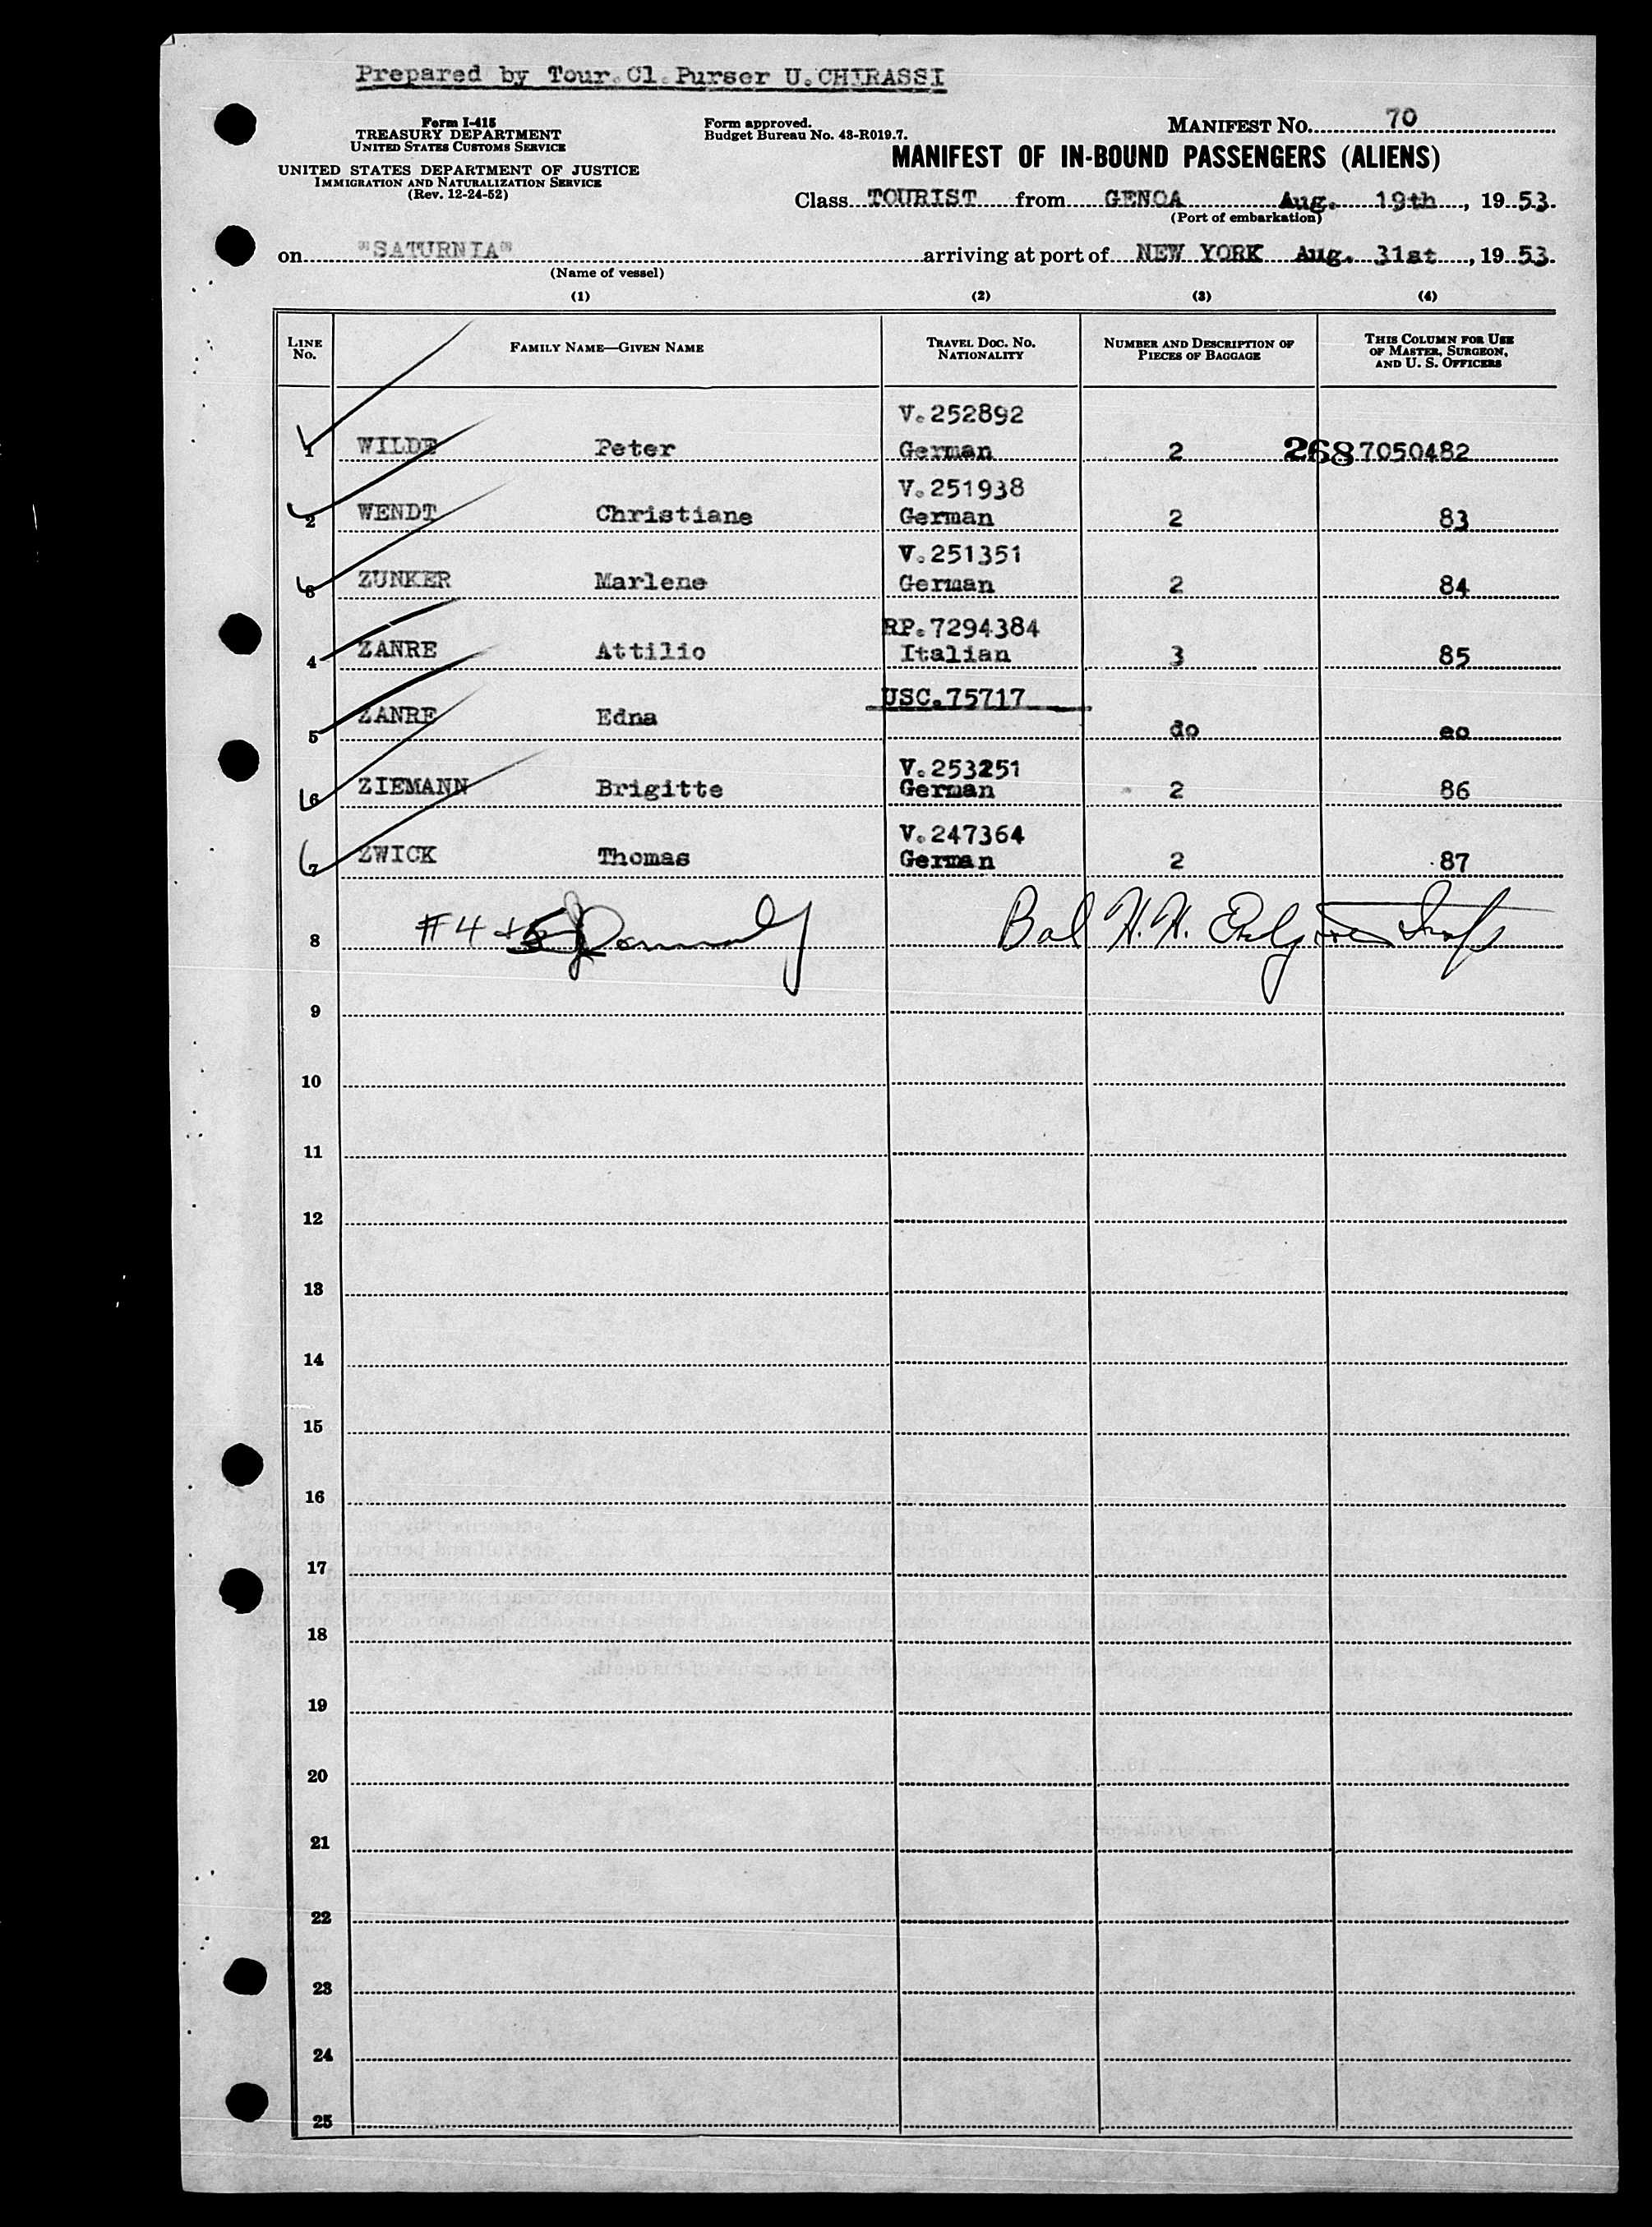 Prepared by Tour.Cl.Purser U.CHIRASSI
Form I-415
TREASURY DEPARTMENT
UNITED STATES CUSTOMS SERVICE
UNITED STATES DEPARTMENT OF JUSTICE
IMMIGRATION AND NATURALIZATION SERVICE
(Rev. 12-24-52)
Form approved.
Budget Bureau No. 43-R019.7.
MANIFEST NO. 70
MANIFEST OF IN-BOUND PASSENGERS (ALIENS)
Class TOURIST from GENOA Aug. 19th, 19 53.
(Port of embarkation)
on "SATURNIA" arriving at port of NEW YORK Aug. 31st, 19 53.
(Name of vessel)
(1) (2) (3) (4)
LINE NO. FAMILY NAME—GIVEN NAME TRAVEL DOC. NO. NATIONALITY NUMBER AND DESCRIPTION OF PIECES OF BAGGAGE THIS COLUMN FOR USE OF MASTER, SURGEON, AND U. S. OFFICERS
V.252892
1 WILDE Peter German 2 268 7050482
V.251938
2 WENDT Christiane German 2 83
V.251351
3 ZUNKER Marlene German 2 84
RP.7294384
4 ZANRE Attilio Italian 3 85
USC.75717
5 ZANRE Edna do eo
V.253251
6 ZIEMANN Brigitte German 2 86
V.247364
7 ZWICK Thomas German 2 87
8 #4+5 Bal H.H.
9
10
11
12
13
14
15
16
17
18
19
20
21
22
23
24
25